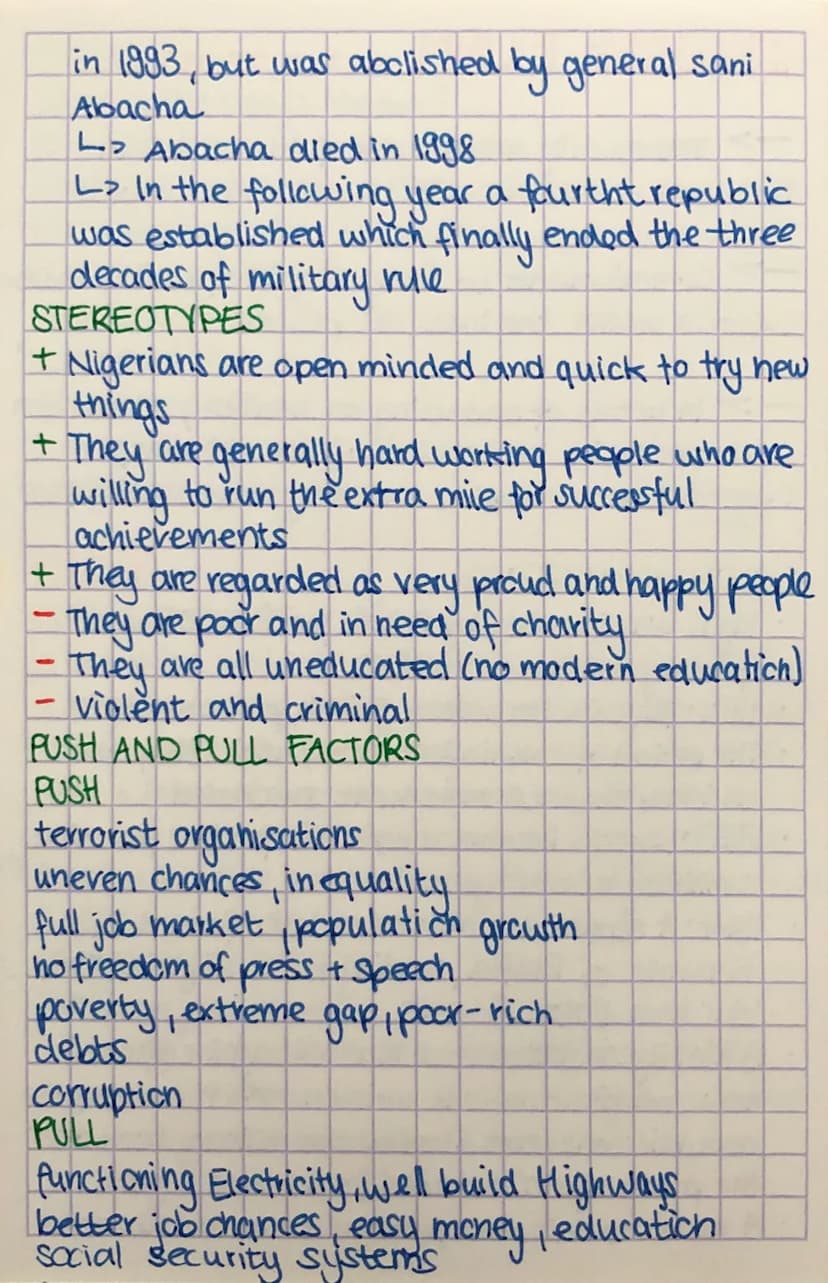 in 1993, but was abolished by general sani
Abacha
↳ Abacha died in 1998
↳ In the following year a fourtht republic
was established which finally ended the three
decades of military rule
STEREOTYPES
+ Nigerians are open minded and quick to try new
things
+ They are generally hard working people who are
willing to run the extra mile for successful
achievements
+ They are regarded as very proud and happy people
- They are poor and in need of charity
- They are all uneducated (no modern education)
- violent and criminal
PUSH AND PULL FACTORS
PUSH
terrorist organisations
uneven chances, inequality
full job market, population growth
no freedom of press + speech
poverty, extreme gap, poor-rich
debts
corruption
PULL
functioning Electricity, well build Highways
better job chances, easy money, education
social security systems